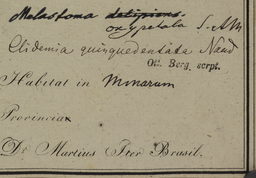 Melastoma decipiens.
oxypetala S. AM
Clidemia quinquedentata Naud
Ott. Berg. scrpt.
Habitat in Minarum
Provincia
Dr Martius Iter Brasil.